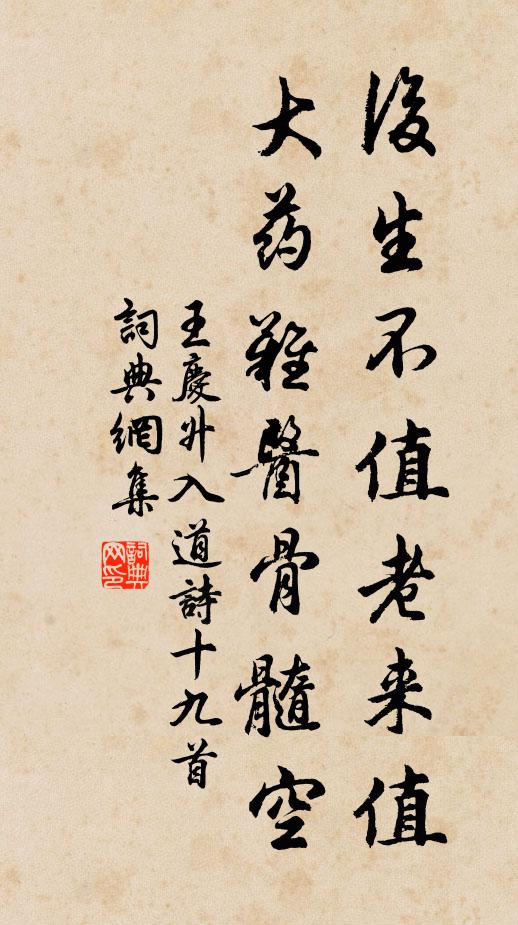 後生不值老来值
大药難醫骨髓空
王慶升入道詩十九首
詞典網集
詞典网印